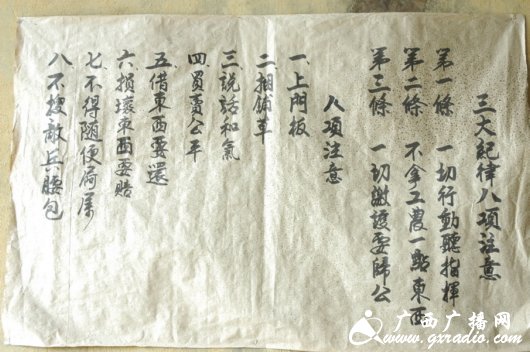 三大紀律八項注意
第一條 一切行動聽指揮
第二條 不拿工農一點東西
第三條 一切繳獲要歸公
八項注意
一、上門板
二、捆鋪草
三、説話和氣
四、買賣公平
五、借東西要還
六、損壞東西要賠
七、不得隨便屙屎
八、不搜敵兵腰包
广西广播网
www.gxradio.com